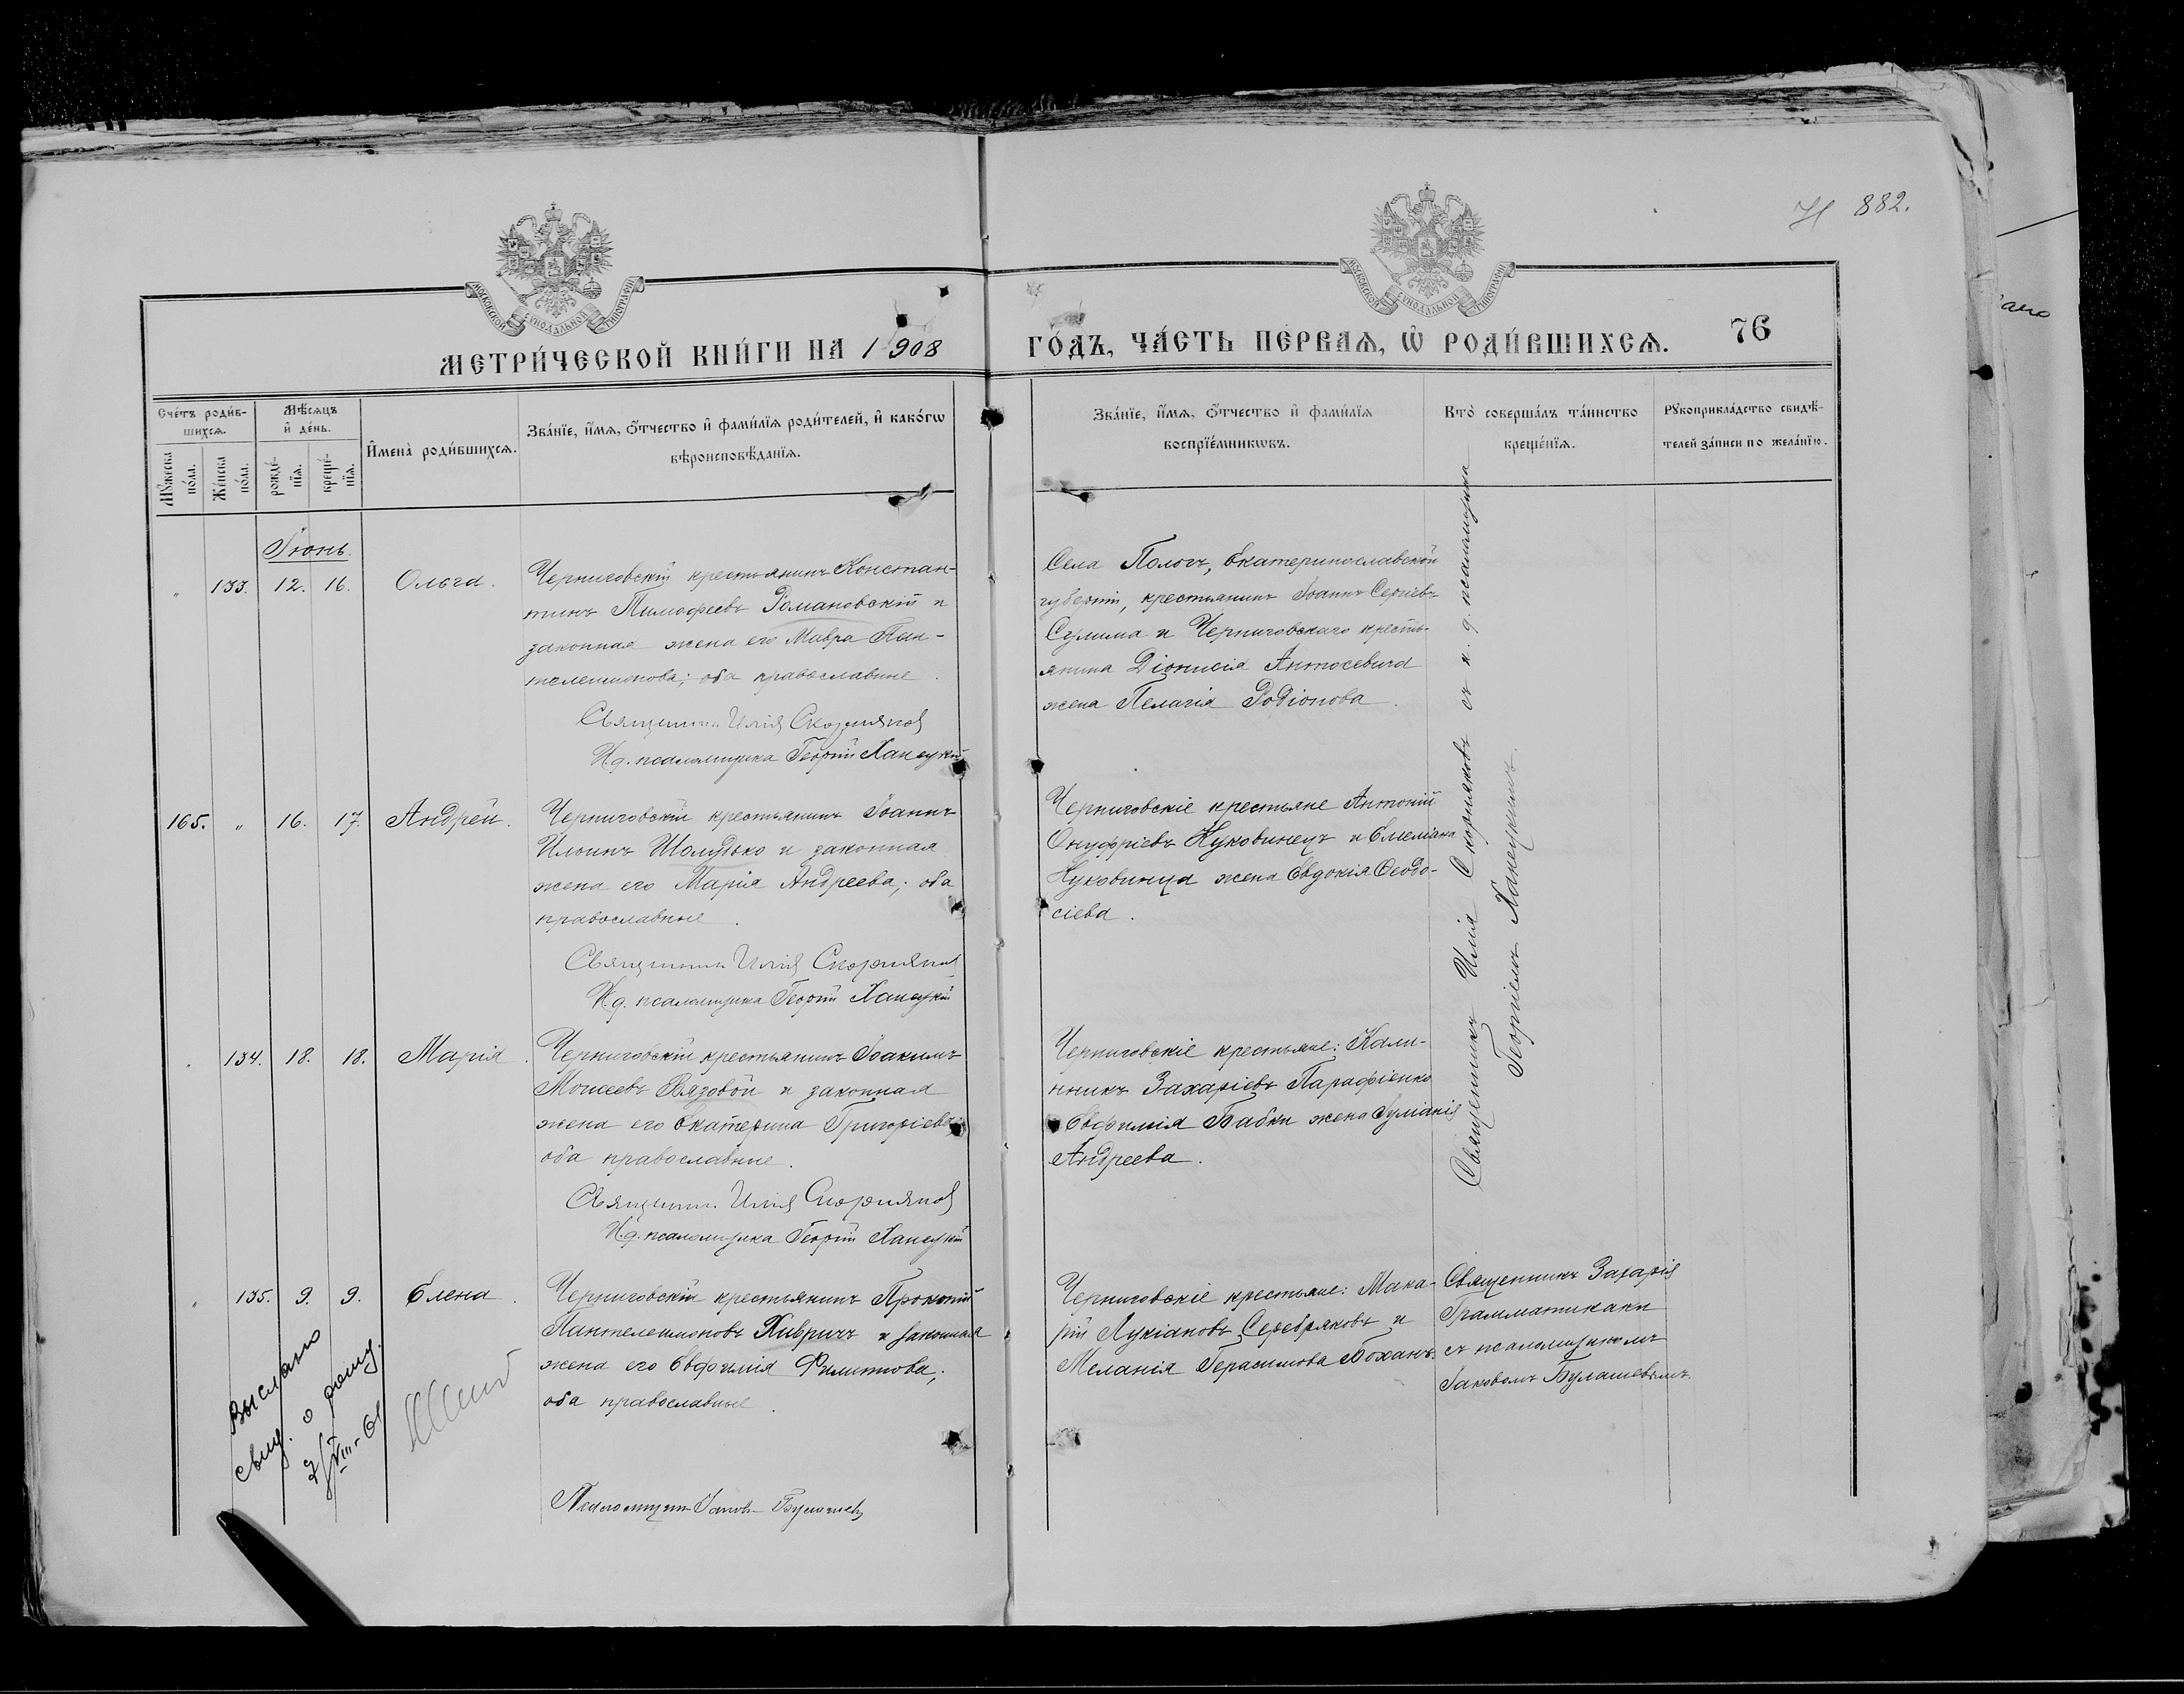 882.
МОСКОВСКОЙ СѴНОДАЛЬНОЙ ТИПОГРАФІИ
МОСКОВСКОЙ СѴНОДАЛЬНОЙ ТИПОГРАФІИ
МЕТРИ́ЧЕСКОЙ КНИ́ГИ НА 1908 ГО́ДЪ, ЧА́СТЬ ПЕ́РВАѦ, Ѡ҆ РОДИ́ВШИХСѦ. 76
Сче́тъ роди́в-
шихсѧ.
Мꙋ́жеска по́ла.
Же́нска по́ла.
Мѣ́сѧцъ
и҆ де́нь.
рожде́-
нїѧ.
креще́-
нїѧ.
И҆мена̀ роди́вшихсѧ.
Зва́нїе, и҆́мѧ, ѻ҆́тчество и҆ фами́лїѧ роди́телей, и҆ како́гѡ
вѣроисповѣ́данїѧ.
Зва́нїе, и҆́мѧ, ѻ҆́тчество и҆ фами́лїѧ
воспрїе́мникѡвъ.
Кто̀ соверша́лъ та́инство
креще́нїѧ.
Рꙋкоприкла́дство свидѣ́-
телей за́писи по жела́нїю.
Іюнь.
" 133. 12. 16. Ольга.
Черниговскій крестьянинъ Констан-
тинъ Тимофеевъ Романовскій и
законная жена его Мавра Пан-
телеимонова; оба православные.
Священникъ Илія Скорняковъ
И.д. псаломщика Георгій Ханецкій
Села Пологъ, Екатеринославской
губерніи, крестьянинъ Іоаннъ Сергіевъ
Сулима и Черниговскаго кресть-
янина Діонисія Антосевича
жена Пелагія Родіонова.
165. " 16. 17. Андрей.
Черниговскій крестьянинъ Іоаннъ
Ильинъ Шолудько и законная
жена его Марія Андреева; оба
православные.
Священникъ Илія Скорняковъ
И.д. псаломщика Георгій Ханецкій
Черниговскіе крестьяне Антоній
Онуфріевъ Куковинецъ и Емеліана
Куковинца жена Евдокія Ѳеодо-
сіева.
" 134. 18. 18. Марія.
Черниговскій крестьянинъ Іоакимъ
Моисеевъ Вязовой и законная
жена его Екатерина Григоріева
оба православные.
Священникъ Илія Скорняковъ
И.д. псаломщика Георгій Ханецкій
Черниговскіе крестьяне: Кали-
нникъ Захаріевъ Парафіенко
Евфимія Бабки жена Іуліанія
Андреева.
Священникъ Илія Скорняковъ съ и. д. псаломщика
Георгіемъ Ханецкимъ.
" 135. 9. 9. Елена.
Черниговскій крестьянинъ Прокопій
Пантелеимоновъ Хивричъ и законная
жена его Евфимія Филиппова;
оба православные.
Псаломщикъ Іаковъ Булашевъ
Черниговскіе крестьяне: Мака-
рій Лукіановъ Серебряковъ и
Меланія Герасимова Боханъ.
Священникъ Захарія
Грамматикаки
съ псаломщикомъ
Іаковомъ Булашевымъ.
Выслано
свид. о рожд.